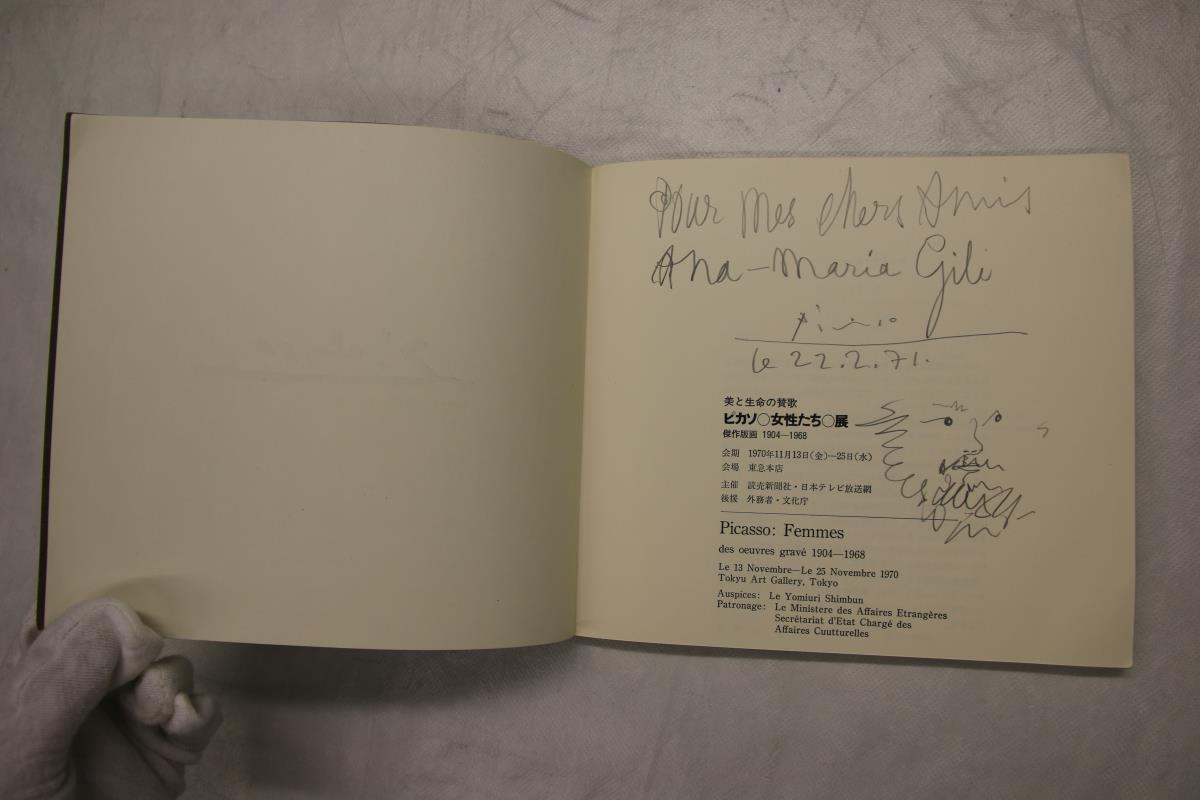 Pour mes chers Amis
Ana-Maria Gili
Picasso
le 22.2.71.
美と生命の賛歌
ピカソ○女性たち○展
傑作版画 1904—1968
会期 1970年11月13日(金)—25日(水)
会場 東急本店
主催 読売新聞社・日本テレビ放送網
後援 外務省・文化庁
Picasso: Femmes
des oeuvres gravé 1904—1968
Le 13 Novembre—Le 25 Novembre 1970
Tokyu Art Gallery, Tokyo
Auspices: Le Yomiuri Shimbun
Patronage: Le Ministere des Affaires Etrangères
Secrétariat d'Etat Chargé des
Affaires Cuutturelles